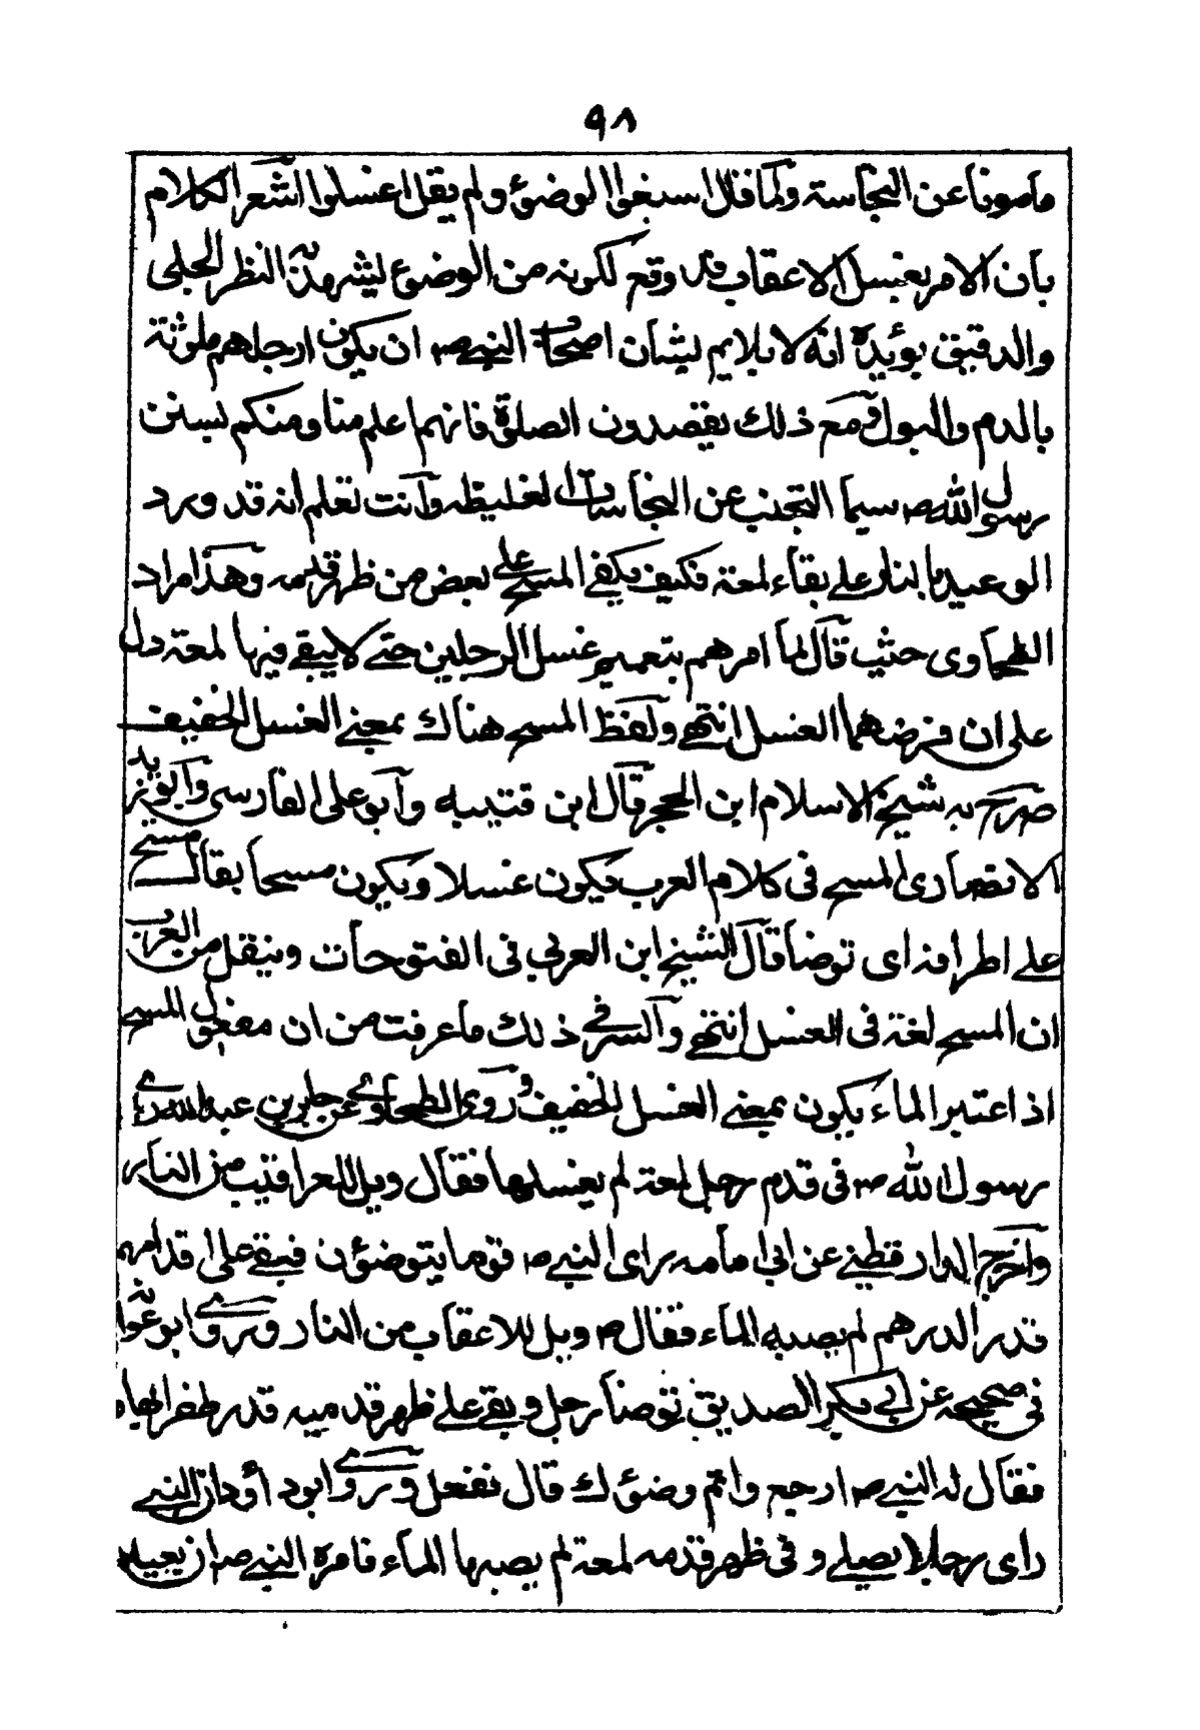 ٩٨
ماصونا عن النجاسة ولما قال اسبغوا الوضوء ولم يقل اغسلوا الشعر الكلام
بان الامر بغسل الاعقاب قد وقع لكونه من الوضوء ليشهد هذا النظر الجلى
والدقيق يؤيده انه لا يلايم بشان اصحاب النبى ص ان يكون ارجلهم ملوثة
بالدم والبول ومع ذلك يقصدون الصلوة فانهم اعلم منا ومنكم بسنن
رسول الله ص سيما التجنب عن النجاسات الغليظه وانت تعلم انه قد ورد
الوعيد بالنار على بقاء لمعة فكيف يكفى المسح على بعض من ظهر قدمه وهذا مراد
الطحاوى حيث قال لما امرهم بتعميم غسل الرجلين حتى لا يبقى فيها لمعة دل
على ان فرضهما الغسل انتهى ولفظ المسح هناك بمعنى الغسل الخفيف
صرح به شيخ الاسلام ابن الحجر قال ابن قتيبه وابو على الفارسى وابو زيد
الانصارى المسح فى كلام العرب يكون غسلا ويكون مسحا يقال مسح
على اطرافه اى توضأ قال الشيخ ابن العربى فى الفتوحات وينقل من العرب
ان المسح لغة فى الغسل انتهى والسر فى ذلك ما عرفت من ان مفعول المسح
اذا اعتبر الماء يكون بمعنى الغسل الخفيف وروى الطحاوى عن جابر بن عبد الله رءى
رسول الله ص فى قدم رجل لمعة لم يغسلها فقال ويل للعراقيب من النار
واخرج الدار قطنى عن ابى امامه راى النبى ص قوما يتوضؤن فبقى على اقدامهم
قدر الدرهم لم يصبه الماء فقال ص ويل للاعقاب من النار وروى ابو عوانه
فى صحيحه عن ابى بكر الصديق توضأ رجل وبقى على ظهر قدميه قدر ظفر ابهام
فقال له النبى ص ارجع واتم وضوءك قال ففعل وروى ابود اؤد ان النبى
راى رجلا يصلى و فى ظهر قدمه لمعة لم يصبها الماء فامره النبى ص ان يعيد